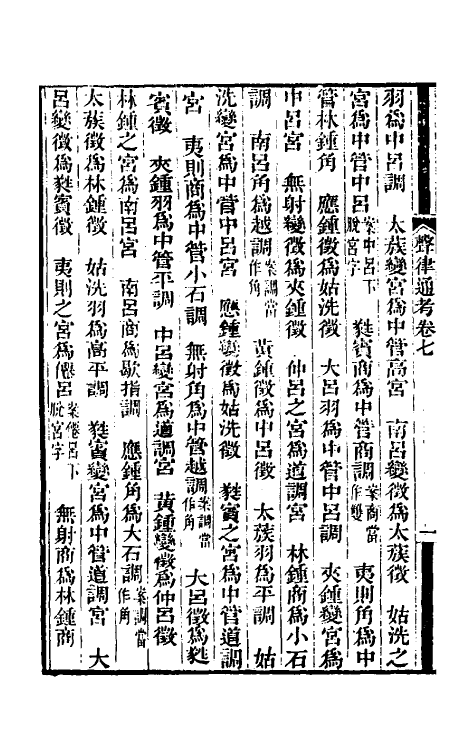 羽爲中呂調　太蔟變宮爲中管高宮　南呂變徵爲太蔟徵　姑洗之
宮爲中管中呂案中呂下脫宮字　蕤賓商爲中管商調案商當作雙　夷則角爲中
管林鍾角　應鍾徵爲姑洗徵　大呂羽爲中管中呂調　夾鍾變宮爲
中呂宮　無射變徵爲夾鍾徵　仲呂之宮爲道調宮　林鍾商爲小石
調　南呂角爲越調案調當作角　黃鍾徵爲中呂徵　太族羽爲平調　姑
洗變宮爲中管中呂宮　應鍾變徵爲姑洗徵　蕤賓之宮爲中管道調
宮　夷則商爲中管小石調　無射角爲中管越調案調當作角　大呂徵爲蕤
賓徵　夾鍾羽爲中管平調　中呂變宮爲道調宮　黃鍾變徵爲仲呂徵
林鍾之宮爲南呂宮　南呂商爲歇指調　應鍾角爲大石調案調當作角
太族徵爲林鍾徵　姑洗羽爲高平調　蕤賓變宮爲中管道調宮　大
呂變徵爲蕤賓徵　夷則之宮爲僊呂案僊呂下脫宮字　無射商爲林鍾商
聲律通考卷七
一